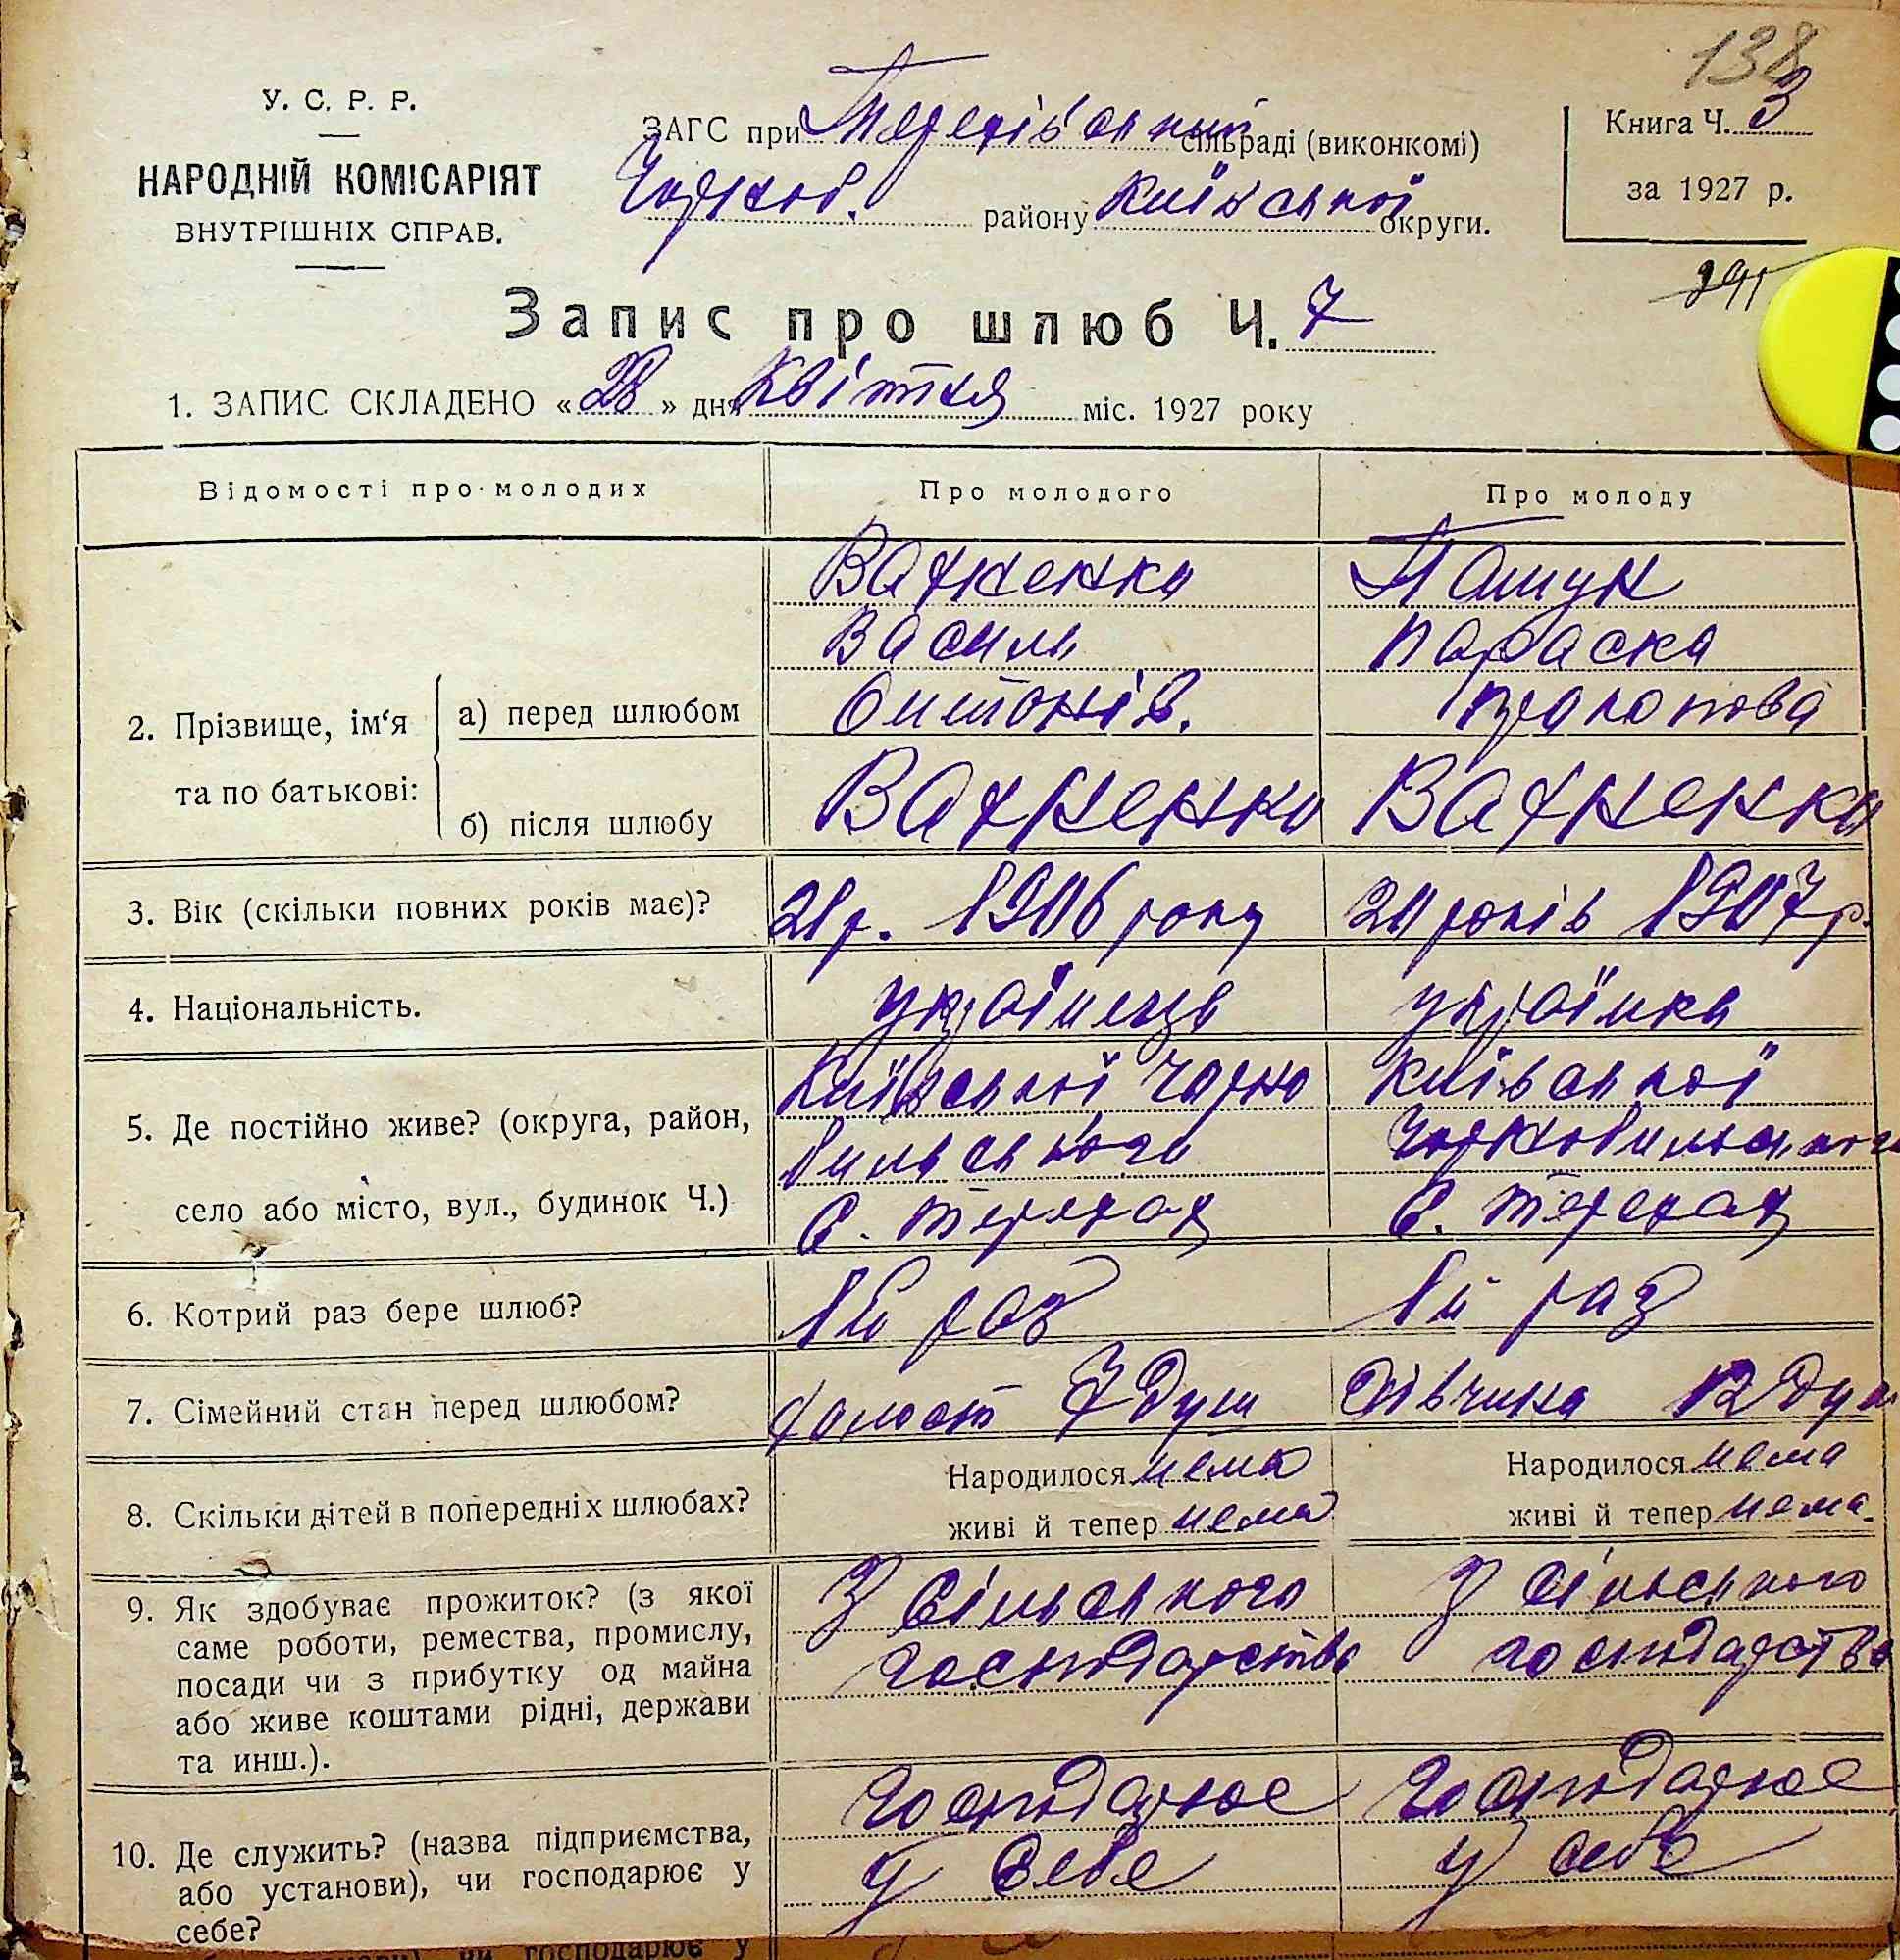 138
У. С. Р. Р.
НАРОДНІЙ КОМІСАРІЯТ
ВНУТРІШНІХ СПРАВ.
ЗАГС при Терехівській сільраді (виконкомі)
Чорноб. району Київської округи.
Книга Ч. 3
за 1927 р.
Запис про шлюб Ч. 7
1. ЗАПИС СКЛАДЕНО « 28 » дня Квітня міс. 1927 року
Відомості про молодих Про молодого Про молоду
2. Прізвище, ім‘я та по батькові:
а) перед шлюбом
Вахненко
Василь
Пашук
Параска
Прокопова
б) після шлюбу
Вахненко Вахненко
3. Вік (скільки повних років має)? 21 р. 1906 року 20 років 1907 р.
4. Національність. українець українка
5. Де постійно живе? (округа, район,
село або місто, вул., будинок Ч.)
Київської Чорно
бильського
с. Терехах
Київської
Чорнобильського
с. Терехах
6. Котрий раз бере шлюб? 1й раз 1й раз
7. Сімейний стан перед шлюбом? холост 7 душ дівчина 12 душ
8. Скільки дітей в попередніх шлюбах?
Народилося нема
живі й тепер нема
Народилося нема
живі й тепер нема.
9. Як здобуває прожиток? (з якої
саме роботи, ремества, промислу,
посади чи з прибутку од майна
або живе коштами рідні, держави
та инш.).
З сільського
господарства
З сільського
господарства
10. Де служить? (назва підприємства,
або установи), чи господарює у
себе?
господарює
у себе
господарює
у себе